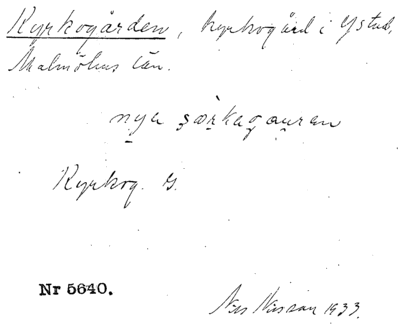 Kyrkogården, kyrkogård i Ystad,
Malmöhus län.
nya
Kyrkog. Y.
Nr 5640.
Nils Nilsson 1933.